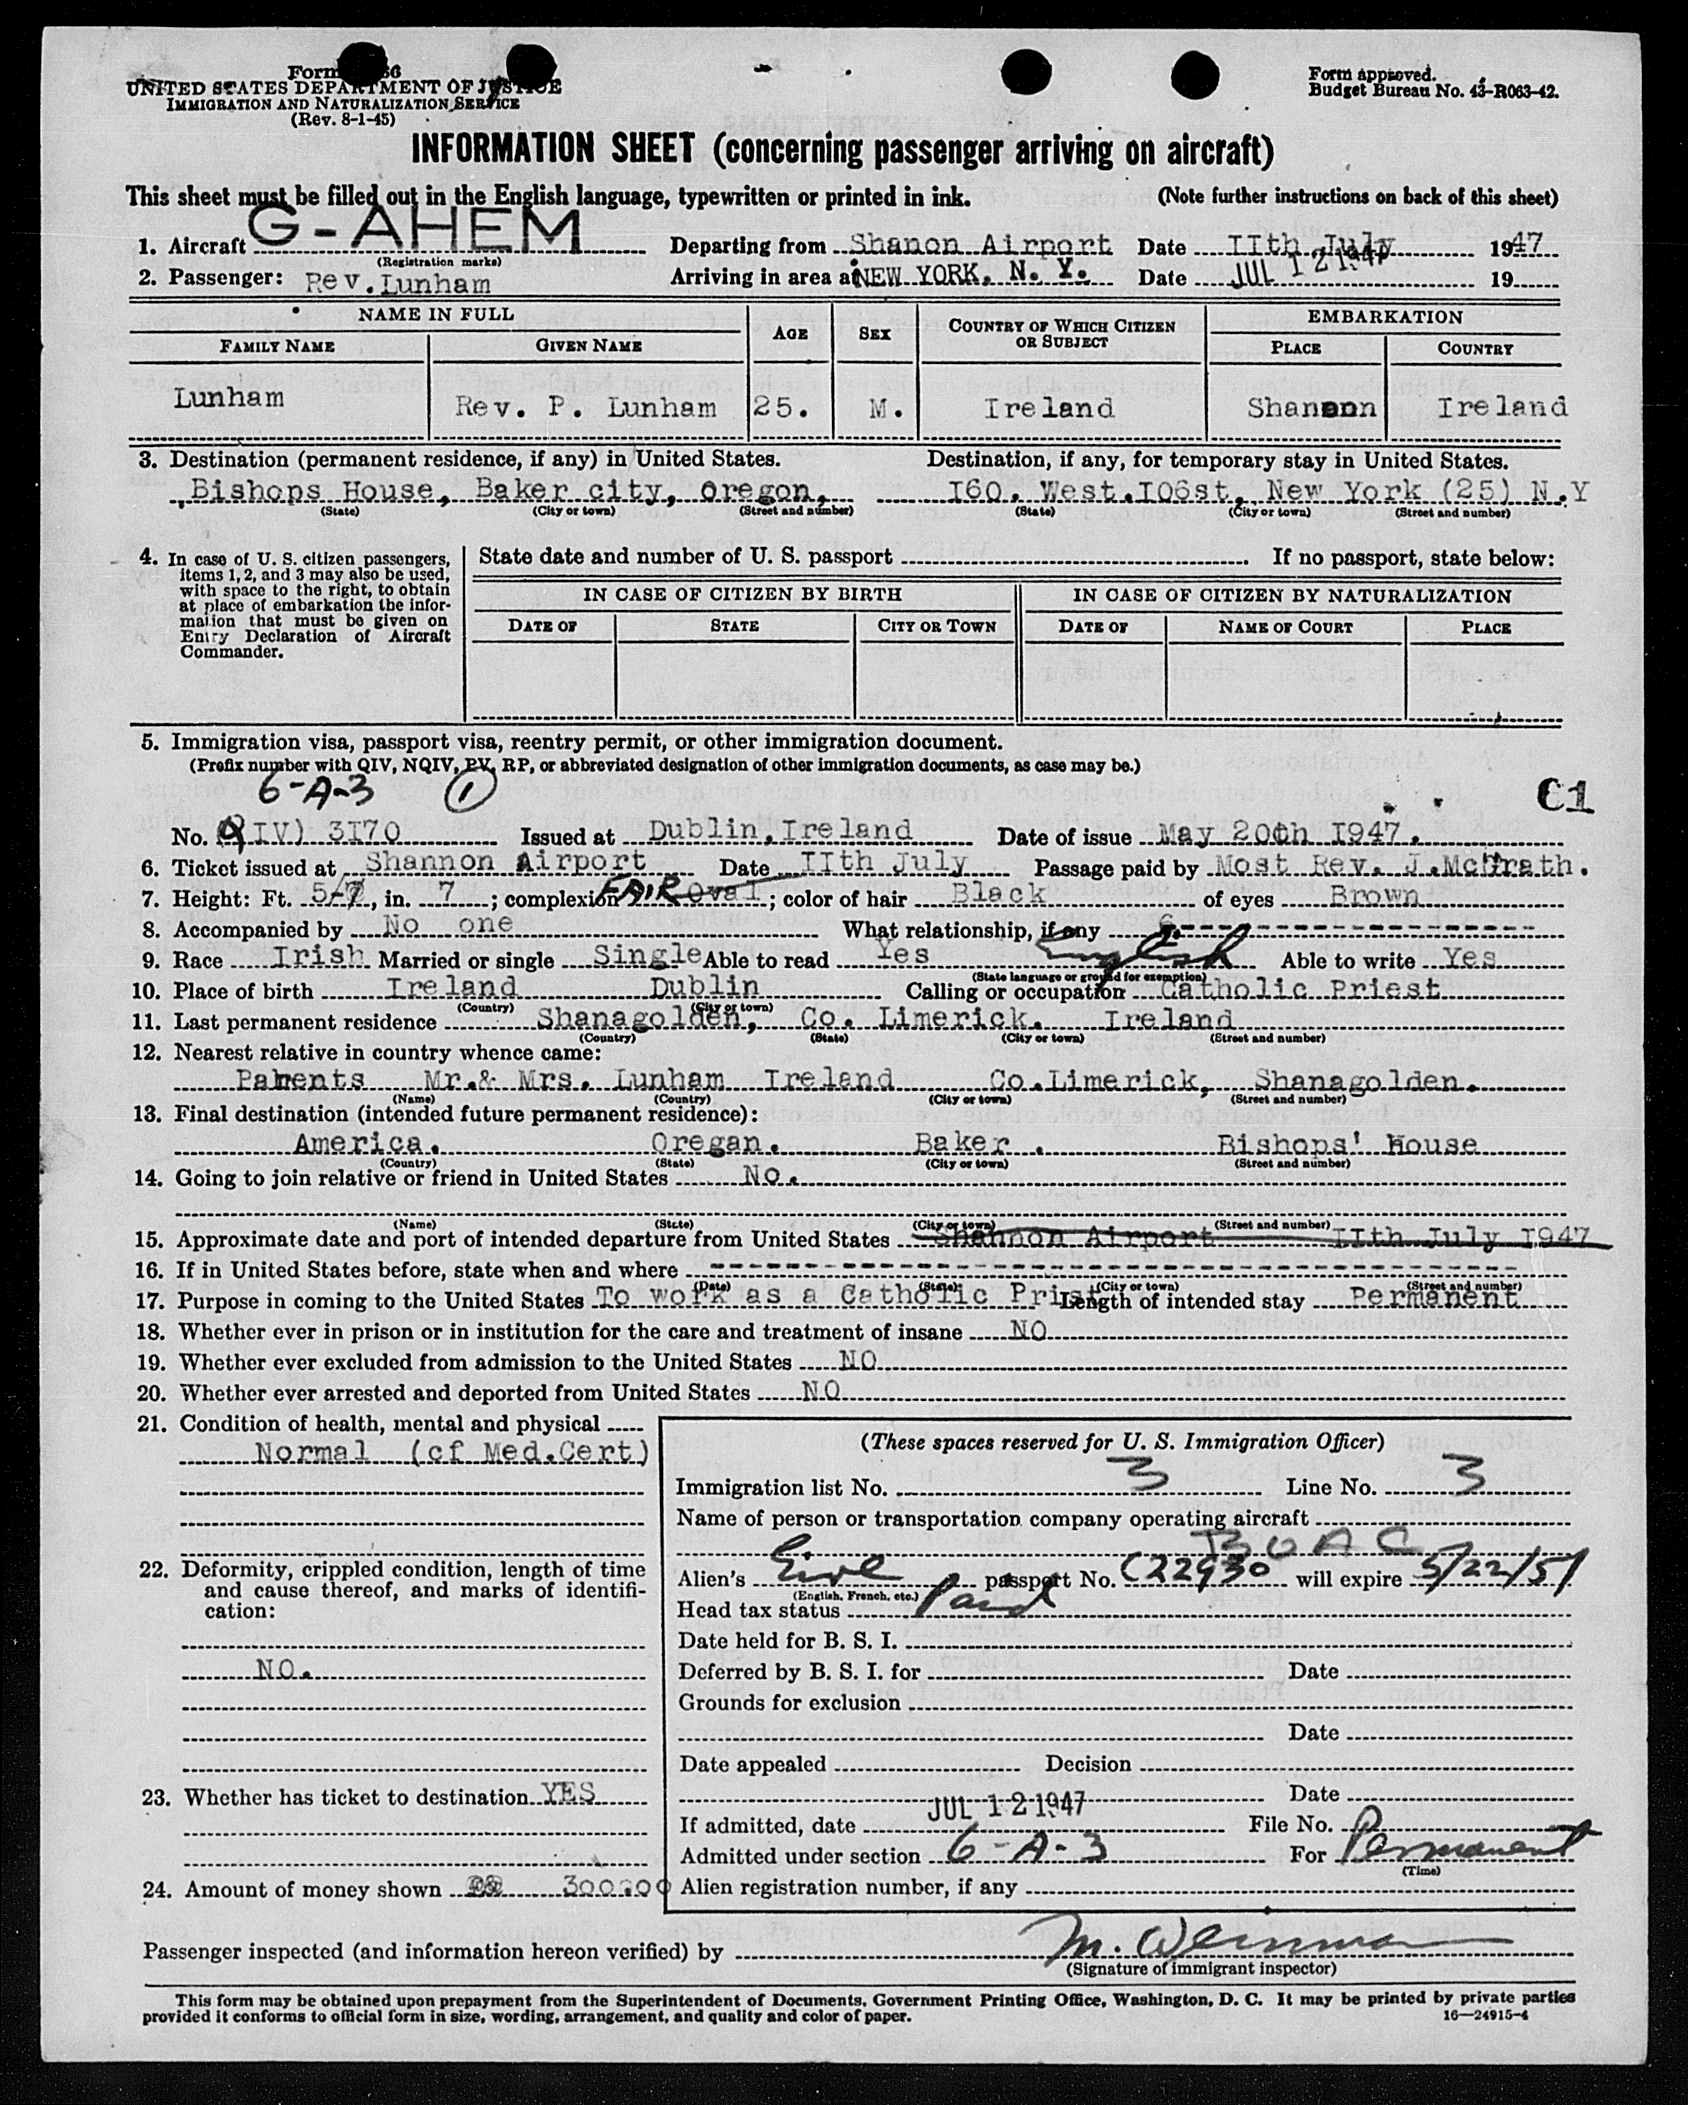 Form 66
UNITED STATES DEPARTMENT OF JUSTICE
IMMIGRATION AND NATURALIZATION SERVICE
(Rev. 8-1-45)
Form approved.
Budget Bureau No. 43-R063-42.
INFORMATION SHEET (concerning passenger arriving on aircraft)
This sheet must be filled out in the English language, typewritten or printed in ink. (Note further instructions on back of this sheet)
1. Aircraft G-AHEM Departing from Shanon Airport Date IIth July 1947
(Registration marks)
2. Passenger: Rev. Lunham Arriving in area at NEW YORK, N. Y. Date JUL 12 1947 19
NAME IN FULL AGE SEX COUNTRY OF WHICH CITIZEN OR SUBJECT EMBARKATION
FAMILY NAME GIVEN NAME PLACE COUNTRY
Lunham Rev. P. Lunham 25. M. Ireland Shannon Ireland
3. Destination (permanent residence, if any) in United States. Destination, if any, for temporary stay in United States.
Bishops House, Baker city, Oregon, I60. West.I06st, New York (25) N.Y
(State) (City or town) (Street and number) (State) (City or town) (Street and number)
4. In case of U. S. citizen passengers, items 1, 2, and 3 may also be used, with space to the right, to obtain at place of embarkation the information that must be given on Entry Declaration of Aircraft Commander.
State date and number of U. S. passport If no passport, state below:
IN CASE OF CITIZEN BY BIRTH IN CASE OF CITIZEN BY NATURALIZATION
DATE OF STATE CITY OR TOWN DATE OF NAME OF COURT PLACE
5. Immigration visa, passport visa, reentry permit, or other immigration document.
(Prefix number with QIV, NQIV, PV, RP, or abbreviated designation of other immigration documents, as case may be.)
6-A-3 1 C1
No. (QIV) 3I70 Issued at Dublin, Ireland Date of issue May 20th I947.
6. Ticket issued at Shannon Airport Date IIth July Passage paid by Most Rev. J.McGrath.
7. Height: Ft. 5, in. 7; complexion FAIR Oval; color of hair Black of eyes Brown
8. Accompanied by No one What relationship, if any
9. Race Irish Married or single Single Able to read Yes English Able to write Yes
(State language or ground for exemption)
10. Place of birth Ireland Dublin Calling or occupation Catholic Priest
(Country) (City or town)
11. Last permanent residence Shanagolden, Co. Limerick. Ireland
(Country) (State) (City or town) (Street and number)
12. Nearest relative in country whence came:
Parents Mr.& Mrs. Lunham Ireland Co.Limerick, Shanagolden.
(Name) (Country) (City or town) (Street and number)
13. Final destination (intended future permanent residence):
America. Oregan. Baker . Bishops' House
(Country) (State) (City or town) (Street and number)
14. Going to join relative or friend in United States No.
(Name) (State) (City or town) (Street and number)
15. Approximate date and port of intended departure from United States Shannon Airport IIth July I947
16. If in United States before, state when and where
(Date) (State) (City or town) (Street and number)
17. Purpose in coming to the United States To work as a Catholic Prist Length of intended stay Permanent
18. Whether ever in prison or in institution for the care and treatment of insane NO
19. Whether ever excluded from admission to the United States NO
20. Whether ever arrested and deported from United States NO
21. Condition of health, mental and physical
Normal (cf Med.Cert)
22. Deformity, crippled condition, length of time and cause thereof, and marks of identification:
NO.
23. Whether has ticket to destination YES
24. Amount of money shown 300.00
(These spaces reserved for U. S. Immigration Officer)
Immigration list No. 3 Line No. 3
Name of person or transportation company operating aircraft
BOAC
Alien's Eire passport No. C22930 will expire 5/22/51
(English, French, etc.)
Head tax status Paid
Date held for B. S. I.
Deferred by B. S. I. for Date
Grounds for exclusion
Date
Date appealed Decision
Date
If admitted, date JUL 12 1947 File No.
Admitted under section 6-A-3 For Permanent
(Time)
Alien registration number, if any
Passenger inspected (and information hereon verified) by M. Weinman
(Signature of immigrant inspector)
This form may be obtained upon prepayment from the Superintendent of Documents, Government Printing Office, Washington, D. C. It may be printed by private parties
provided it conforms to official form in size, wording, arrangement, and quality and color of paper. 16—24915-4